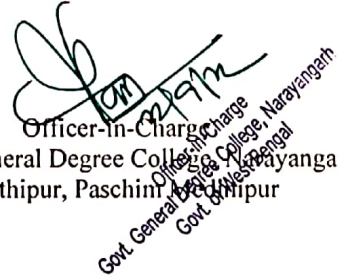 Officer-in-Charge
neral Degree College, Narayanga
thipur, Paschim Medinipur
Officer-in-Charge
Govt. General Degree College, Narayangarh
Govt. of West Bengal